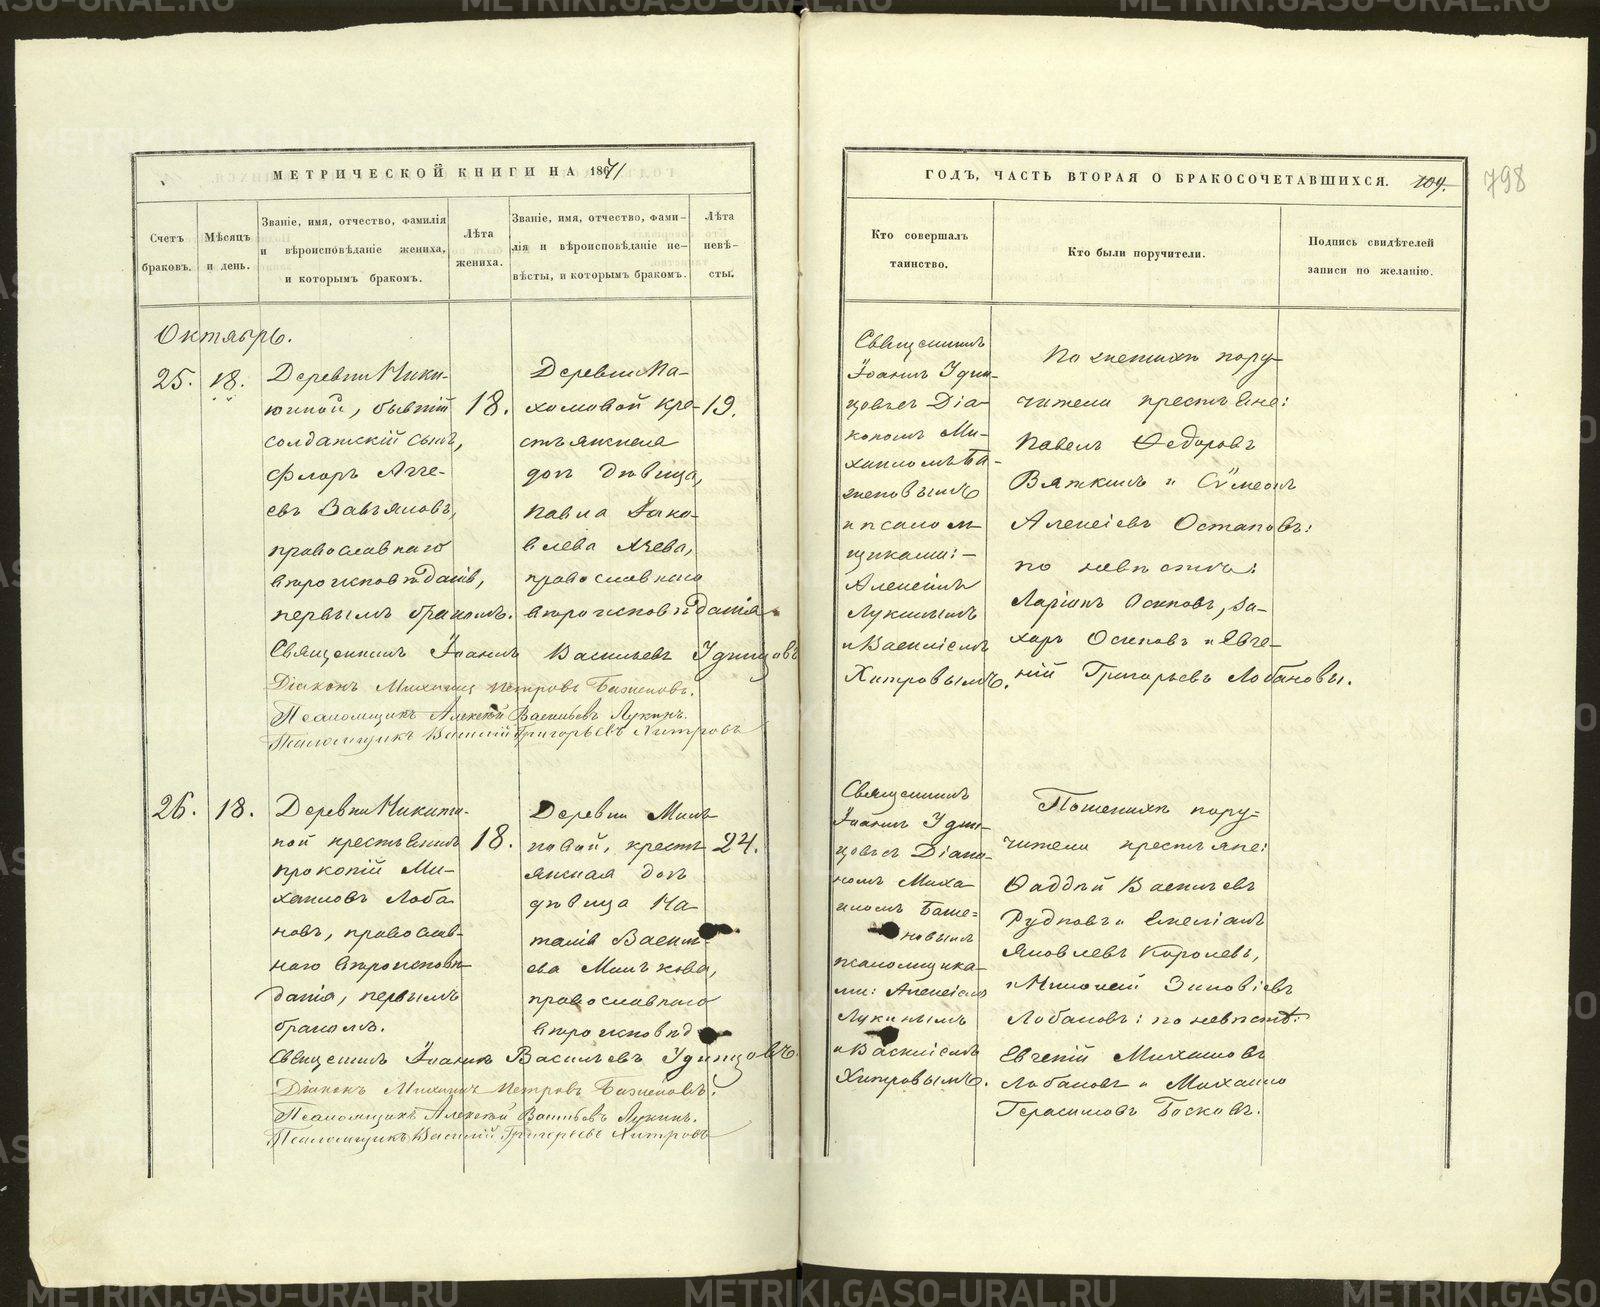 МЕТРИЧЕСКОЙ КНИГИ НА 1871
Счетъ браковъ.
Мѣсяцъ и день.
Званіе, имя, отчество, фамилія и вѣроисповѣданіе жениха, и которымъ бракомъ.
Лѣта жениха.
Званіе, имя, отчество, фамилія и вѣроисповѣданіе невѣсты, и которымъ бракомъ.
Лѣта невѣсты.
Октябрь.
25.
18.
Деревни Ники-
тиной, бывшій
солдатскій сынъ,
Флоръ
православнаго
вѣроисповѣданія,
первымъ бракомъ.
18.
Деревни Па-
хомовой кре-
стьянская
дочь дѣвица,
Павла Іако-
влева
православнаго
вѣроисповѣданія
19.
Священникъ Іоаннъ Васильевъ Удинцовъ
Діаконъ Михаилъ Петровъ Баженовъ.
Псаломщикъ Алексѣй Васильевъ Лукинъ.
Псаломщикъ Василій Григорьевъ Хитровъ
26.
18.
Деревни Никити-
ной крестьянинъ
Прокопій Ми-
хаиловъ Лоба
новъ, православ-
наго вѣроисповѣ-
данія, первымъ
бракомъ.
18.
Деревни Мань-
ковой, кресть-
янская дочь
дѣвица На-
талія Василь-
ева Манькова,
православнаго
вѣроисповѣд
24.
Священникъ Іоаннъ Васильевъ Удинцовъ.
Діаконъ Михаилъ Петровъ Баженовъ.
Псаломщикъ Алексѣй Васильевъ Лукинъ.
Псаломщикъ Василій Григорьевъ Хитровъ
ГОДЪ, ЧАСТЬ ВТОРАЯ О БРАКОСОЧЕТАВШИХСЯ.
109.
798
Кто совершалъ таинство.
Кто были поручители.
Подпись свидѣтелей записи по желанію.
Священникъ
Іоаннъ Удин-
цовъ съ Діа-
кономъ Ми-
хаиломъ Ба-
женовымъ
и псалом-
щиками:—
Алексѣемъ
Лукинымъ
и Василіемъ
Хитровымъ.
По женихѣ пору-
чители крестьяне:
Павелъ Ѳедоровъ
Вяткинъ и Сѵмеонъ
Алексіевъ Остаповъ:
по невѣстѣ:
Ларіонъ Осиповъ, За-
харъ Осиповъ и Евге-
ній Григорьевъ Лобановы.
Священникъ
Іоаннъ Удин-
цовъ съ Діако-
номъ Миха
иломъ Баже-
новымъ
псаломщика-
ми: Алексіемъ
Лукинымъ
и Василіемъ
Хитровымъ.
По женихѣ пору-
чители крестьяне:
Ѳаддѣй Васильевъ
Рудновъ и Емеліанъ
Яковлевъ Королевъ,
и Николай Зиновіевъ
Лобановъ: по невѣстѣ:
Евгеній Михаиловъ
Лобановъ и Михаилъ
Герасимовъ Босковъ.
METRIKI.GASO-URAL.RU